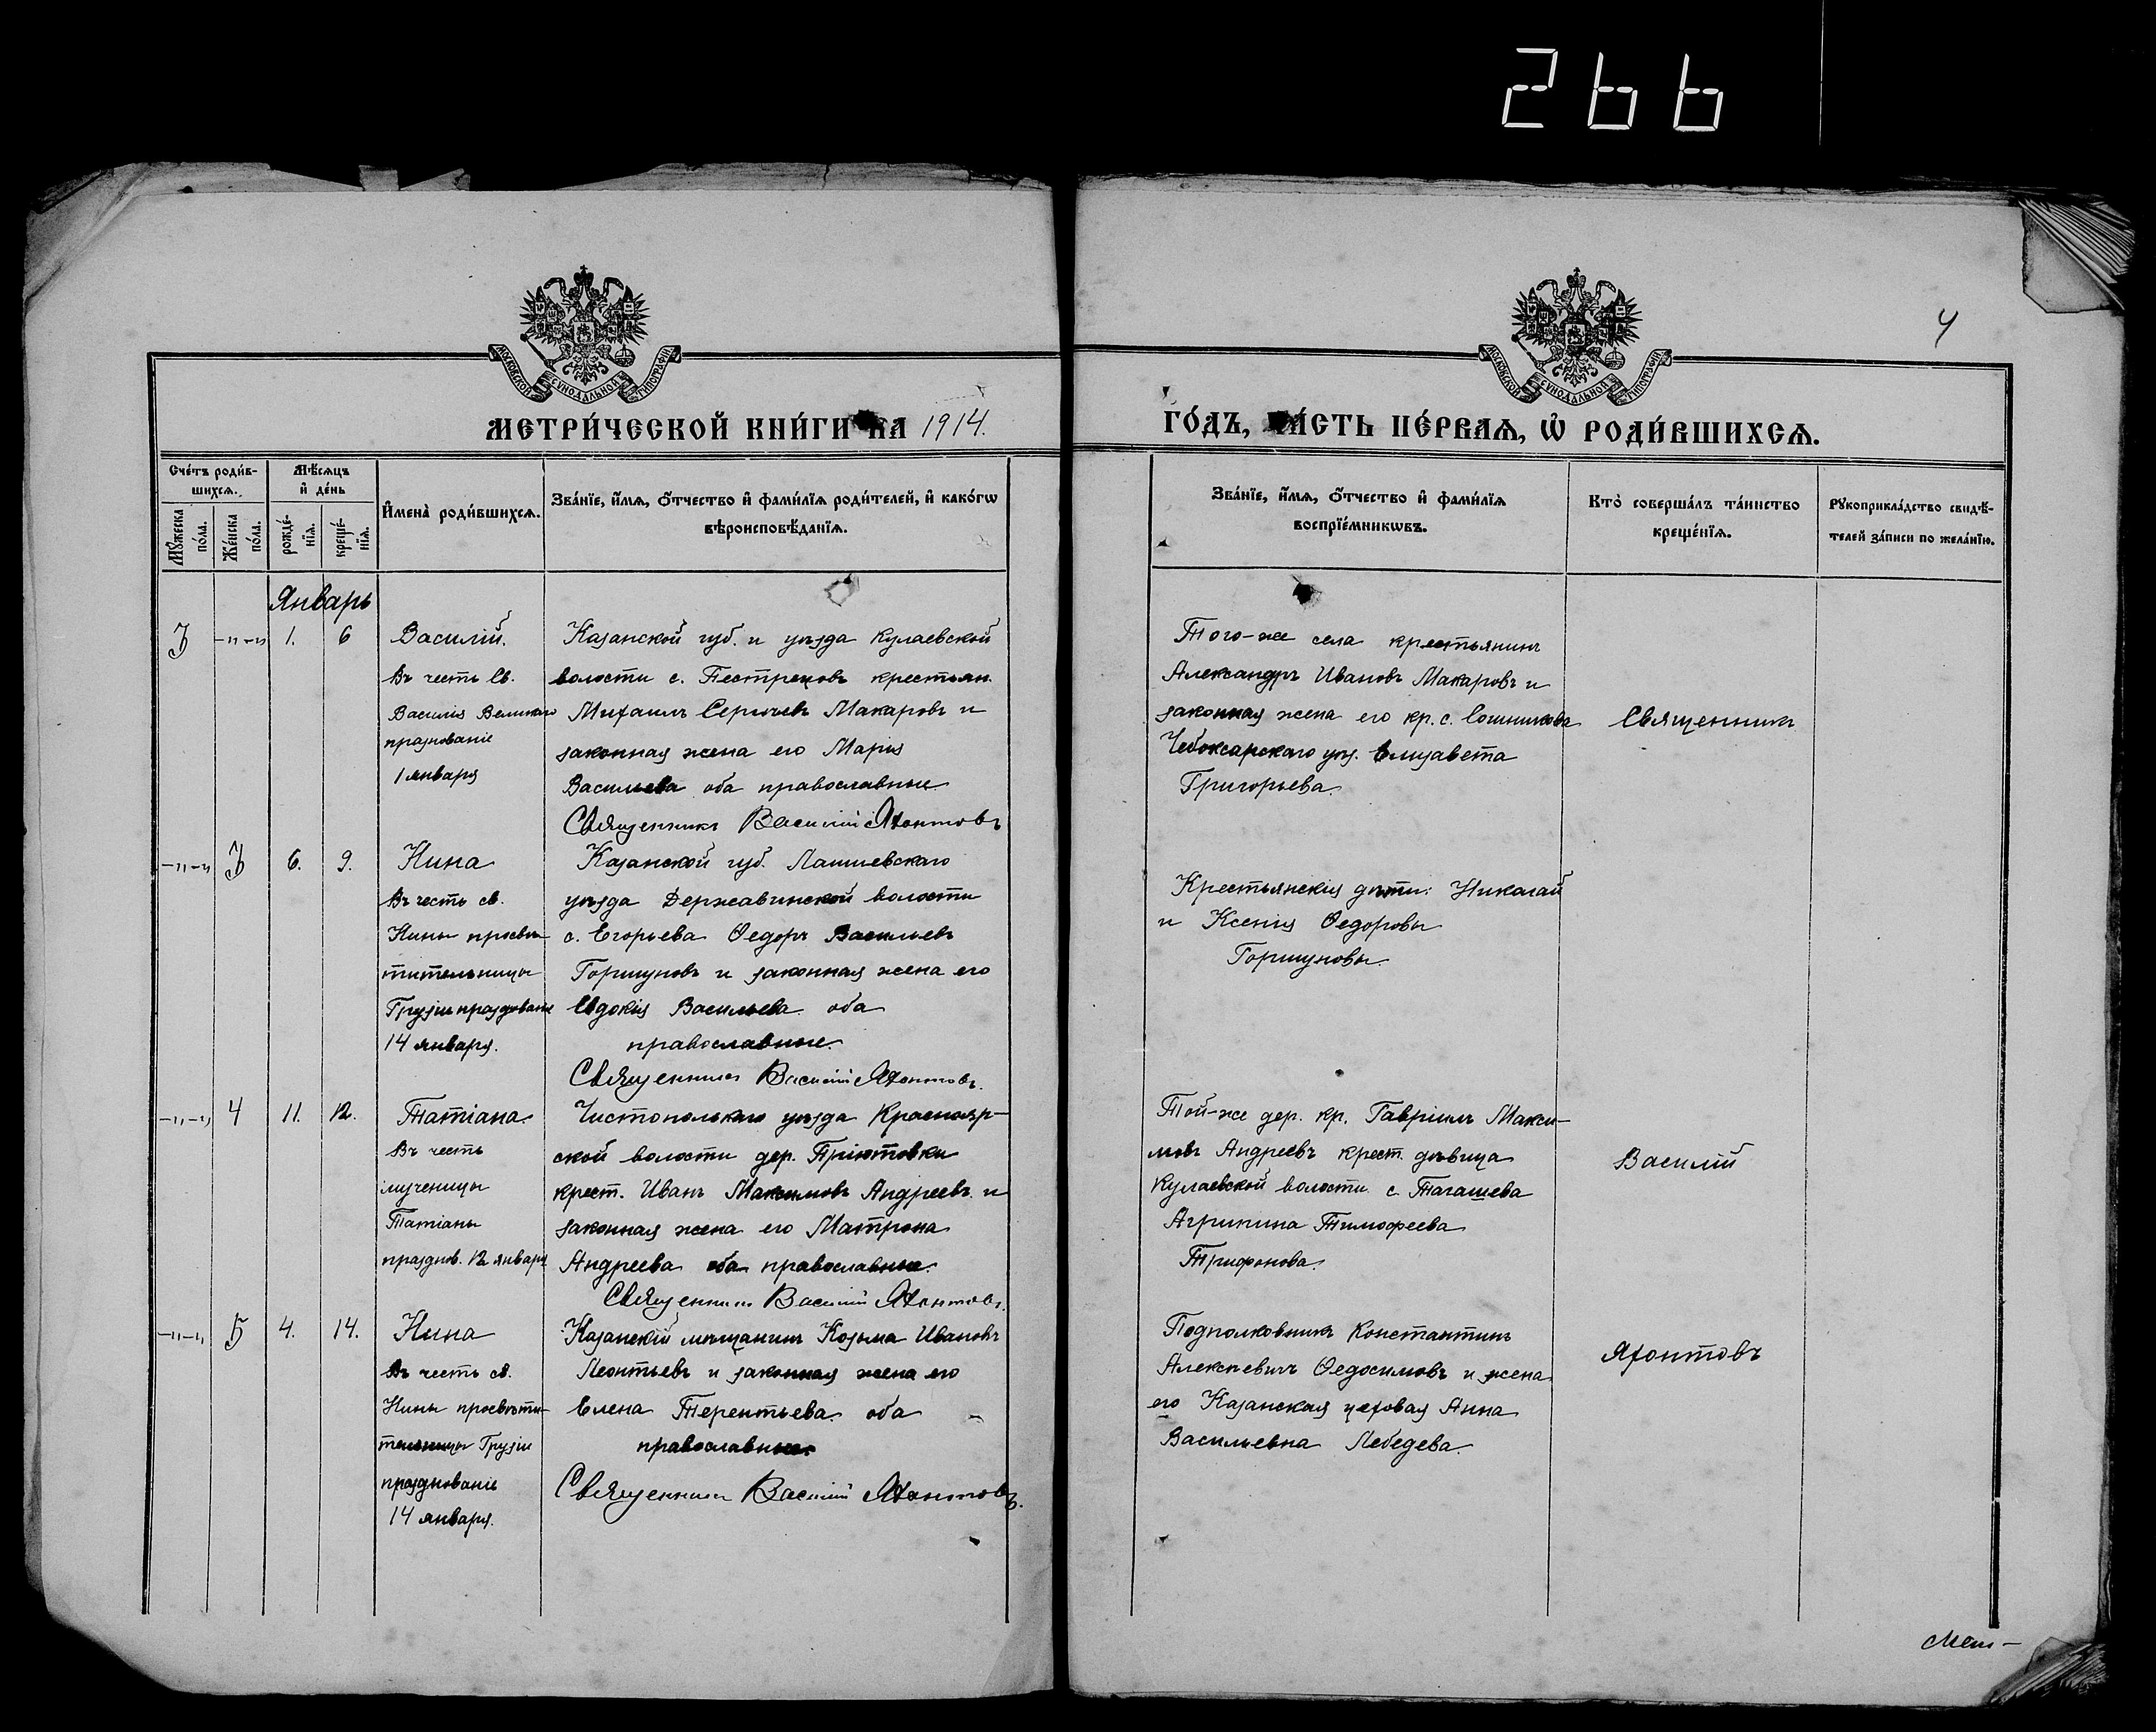 266
МОСКОВСКОЙ СѴНОДАЛЬНОЙ ТИПОГРАФІИ
МОСКОВСКОЙ СѴНОДАЛЬНОЙ ТИПОГРАФІИ
4
МЕТРИ́ЧЕСКОЙ КНИ́ГИ НА 1914.
ГО́ДЪ, ЧА́СТЬ ПЕ́РВАѦ, Ѡ РОДИ́ВШИХСѦ.
Сче́тъ роди́в-
шихсѧ.
Мѣ́сѧцъ
и҆ де́нь
Мꙋ́жеска по́ла.
Же́нска по́ла.
рожде́-
нїѧ.
креще́-
нїѧ.
И҆мена̀ роди́вшихсѧ.
Зва́нїе, и҆́мѧ, ѻ҆́тчество и҆ фами́лїѧ роди́телей, и҆ како́гѡ
вѣроисповѣ́данїѧ.
Зва́нїе, и҆́мѧ, ѻ҆́тчество и҆ фами́лїѧ
воспрїе́мникѡвъ.
Кто̀ соверша́лъ та́инство
креще́нїѧ.
Рꙋкоприкла́дство свидѣ́-
телей за́писи по жела́нїю.
Январь
3 -"-" 1. 6
Василій.
Въ честь Св.
Василія Великаго
празнованіе
1 января
Казанской губ. и уѣзда Кулаевской
волости с. Пестрецовъ крестьян.
Михаилъ Сергѣевъ Макаровъ и
законная жена его Марія
Васильева оба православные
Священникъ Василій Яхонтовъ
Того-же села крестьянинъ
Александръ Ивановъ Макаровъ и
законная жена его кр. с.
Чебоксарскаго уѣз. Елизавета
Григорьева.
Священникъ
-"-" 3 6. 9.
Нина
Въ честь св.
Нины просвѣ-
тительницы
Грузіи праздованіе
14 января.
Казанской губ. Лаишевскаго
уѣзда Державинской волости
с. Егорьева Ѳедоръ Васильевъ
Горшуновъ и законная жена его
Евдокія Васильева оба
православные.
Священникъ Василій Яхонтовъ.
Крестьянскія дѣти: Николай
и Ксенія Ѳедоровы
Горшуновы.
-"-" 4 11. 12.
Татіана
Въ честь
мученицы
Татіаны
празднов. 12 января
Чистопольскаго уѣзда Краснояр-
ской волости дер. Пріютовки
крест. Иванъ Максимовъ Андреевъ и
законная жена его Матрона
Андреева оба православные.
Священникъ Василій Яхонтовъ.
Той-же дер. кр. Гавріилъ Макси-
мовъ Андреевъ крест. дѣвица
Кулаевской волости с. Тагашева
Агрипина Тимофеева
Трифонова.
Василій
-"-" 5 4. 14.
Нина
Въ честь св.
Нины просвѣти-
тельницы Грузіи
празднованіе
14 января.
Казанскій мѣщанинъ Козьма Ивановъ
Леонтьевъ и законная жена его
Елена Терентьева оба
православные.
Священникъ Василій Яхонтовъ.
Подполковникъ Константинъ
Алексѣевичъ Ѳедосимовъ и жена
его Казанская цеховая Анна
Васильевна Лебедева.
Яхонтовъ